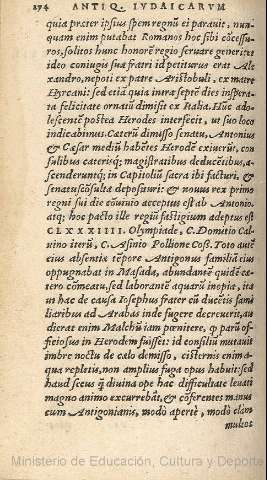 294 ANTIQ. IVDAICARVM
quia præter ipsius spem regnũ ei parauit, nun-
quam enim putabat Romanos hoc sibi cõcessu-
ros, solitos hunc honorẽ regio seruare generi: et
ideo coniugis suæ fratri id petiturus erat Ale
xandro, nepoti ex patre Aristobuli, ex matre
Hyrcani: sed etiã quia intra septẽ dies insper-
ata felicitate ornatũ dimisit ex Italia. Hũc ado-
lescentẽ postea Herodes interfecit, ut suo loco
indicabimus. Caterũ dimisso senatu, Antonius
& Cæsar mediũ habẽtes Herodẽ exiuerũt, con
sulibus caterisq; magistratibus deducẽtibus, a-
scenderuntq; in Capitoliũ sacra ibi facturi, &
senatuscõsulta deposituri: & nouus rex primo
regni sui die cõuiuio acceptus est ab Antonio.
atq; hoc pacto ille regiũ fastigium adeptus est
CLXXXIIII. Olympiade, C. Domitio Cal-
uino iterũ, C. Asinio Pollione Coß. Toto autẽ
eius absentiæ tẽpore Antigonus familiã eius
oppugnabat in Masada, abundantẽ quidẽ cæ-
tero cõmeatu, sed laborantẽ aquarũ inopia, ita
ut hac de causa Iosephus frater cũ ducẽtis fami
liaribus ad Arabas inde fugere decreuerit, au
dierat enim Malchũ iam pœnitere, q̃ parũ of-
ficiosus in Herodem fuisset: id consiliũ mutauit
imbre noctu de cælo demisso, cisternis enim a-
qua repletis, non amplius fuga opus habuit: sed
haud secus q̃ diuina ope hac difficultate leuati
magno animo excurrebãt, & cõferentes manus
cum Antigonianis, modò apertè, modò clam
multos
Ministerio de Educación, Cultura y Deporte